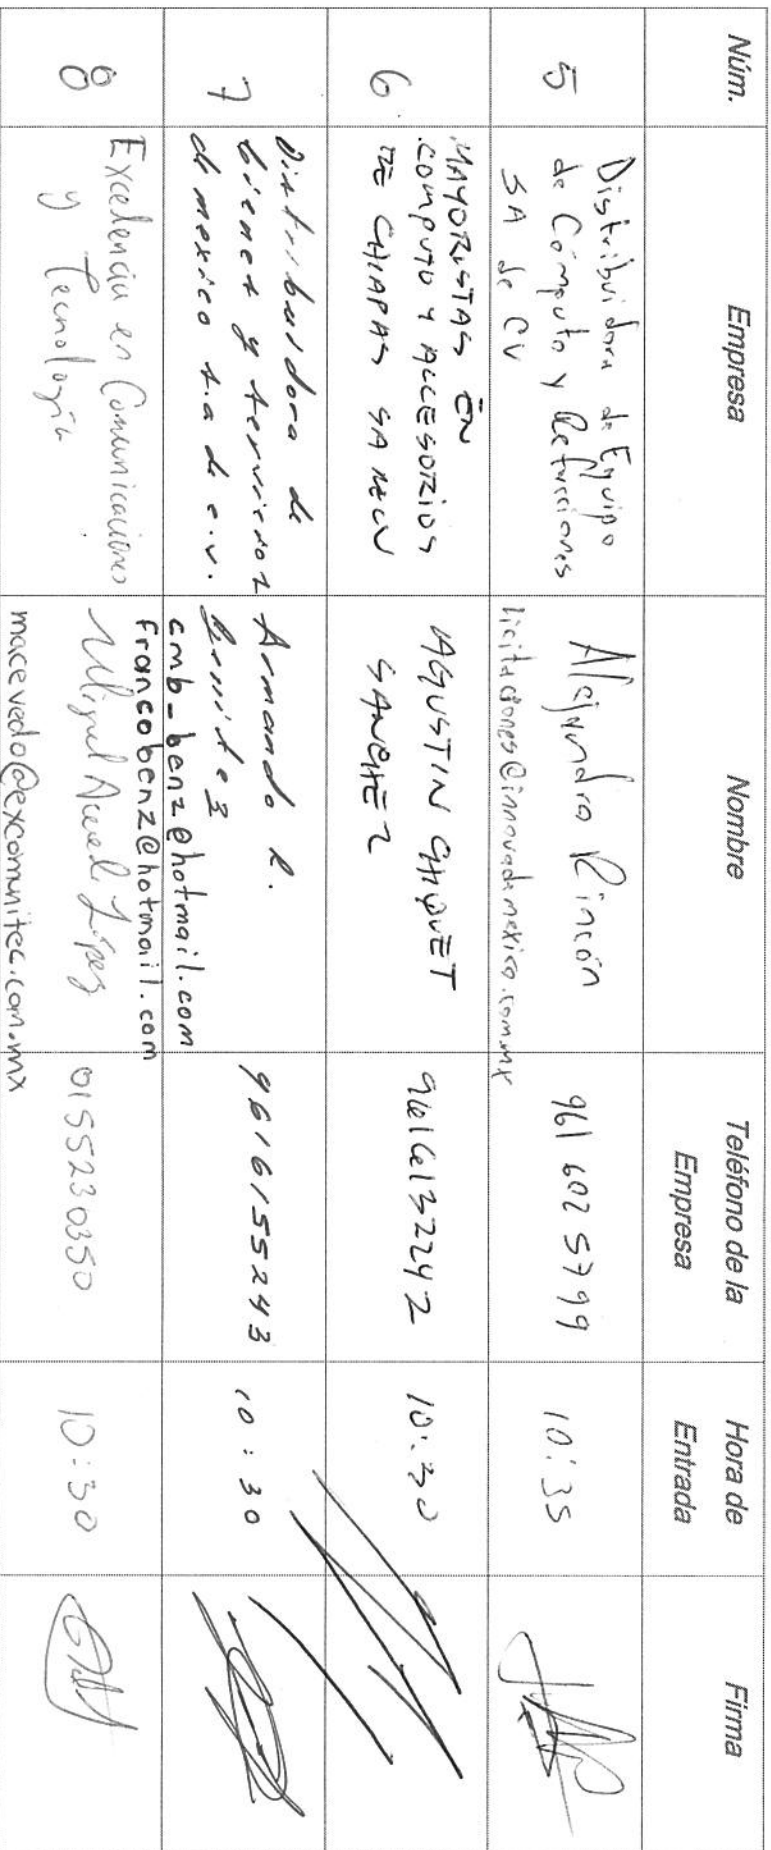 Núm.
Empresa
Nombre
Teléfono de la
Empresa
Hora de
Entrada
Firma
5
Distribuidora de Equipo
de Cómputo y Refacciones
SA de CV
Alejandro Rincón
licitaciones@innovademexico.com.mx
961 602 5799
10:35
6
MAYORISTAS EN
COMPUTO Y ACCESORIOS
DE CHIAPAS SA DE CV
AGUSTIN CHIQUET
SANCHEZ
9616132242
10:30
7
Distribuidora de
bienes y servicios
de mexico s.a de c.v.
Armando R.
Benitez
cmb-benz@hotmail.com
francobenz@hotmail.com
9616155243
10:30
8
Excelencia en Comunicaciones
y Tecnología
Miguel López
macevedo@excomunitec.com.mx
01555230350
10:30